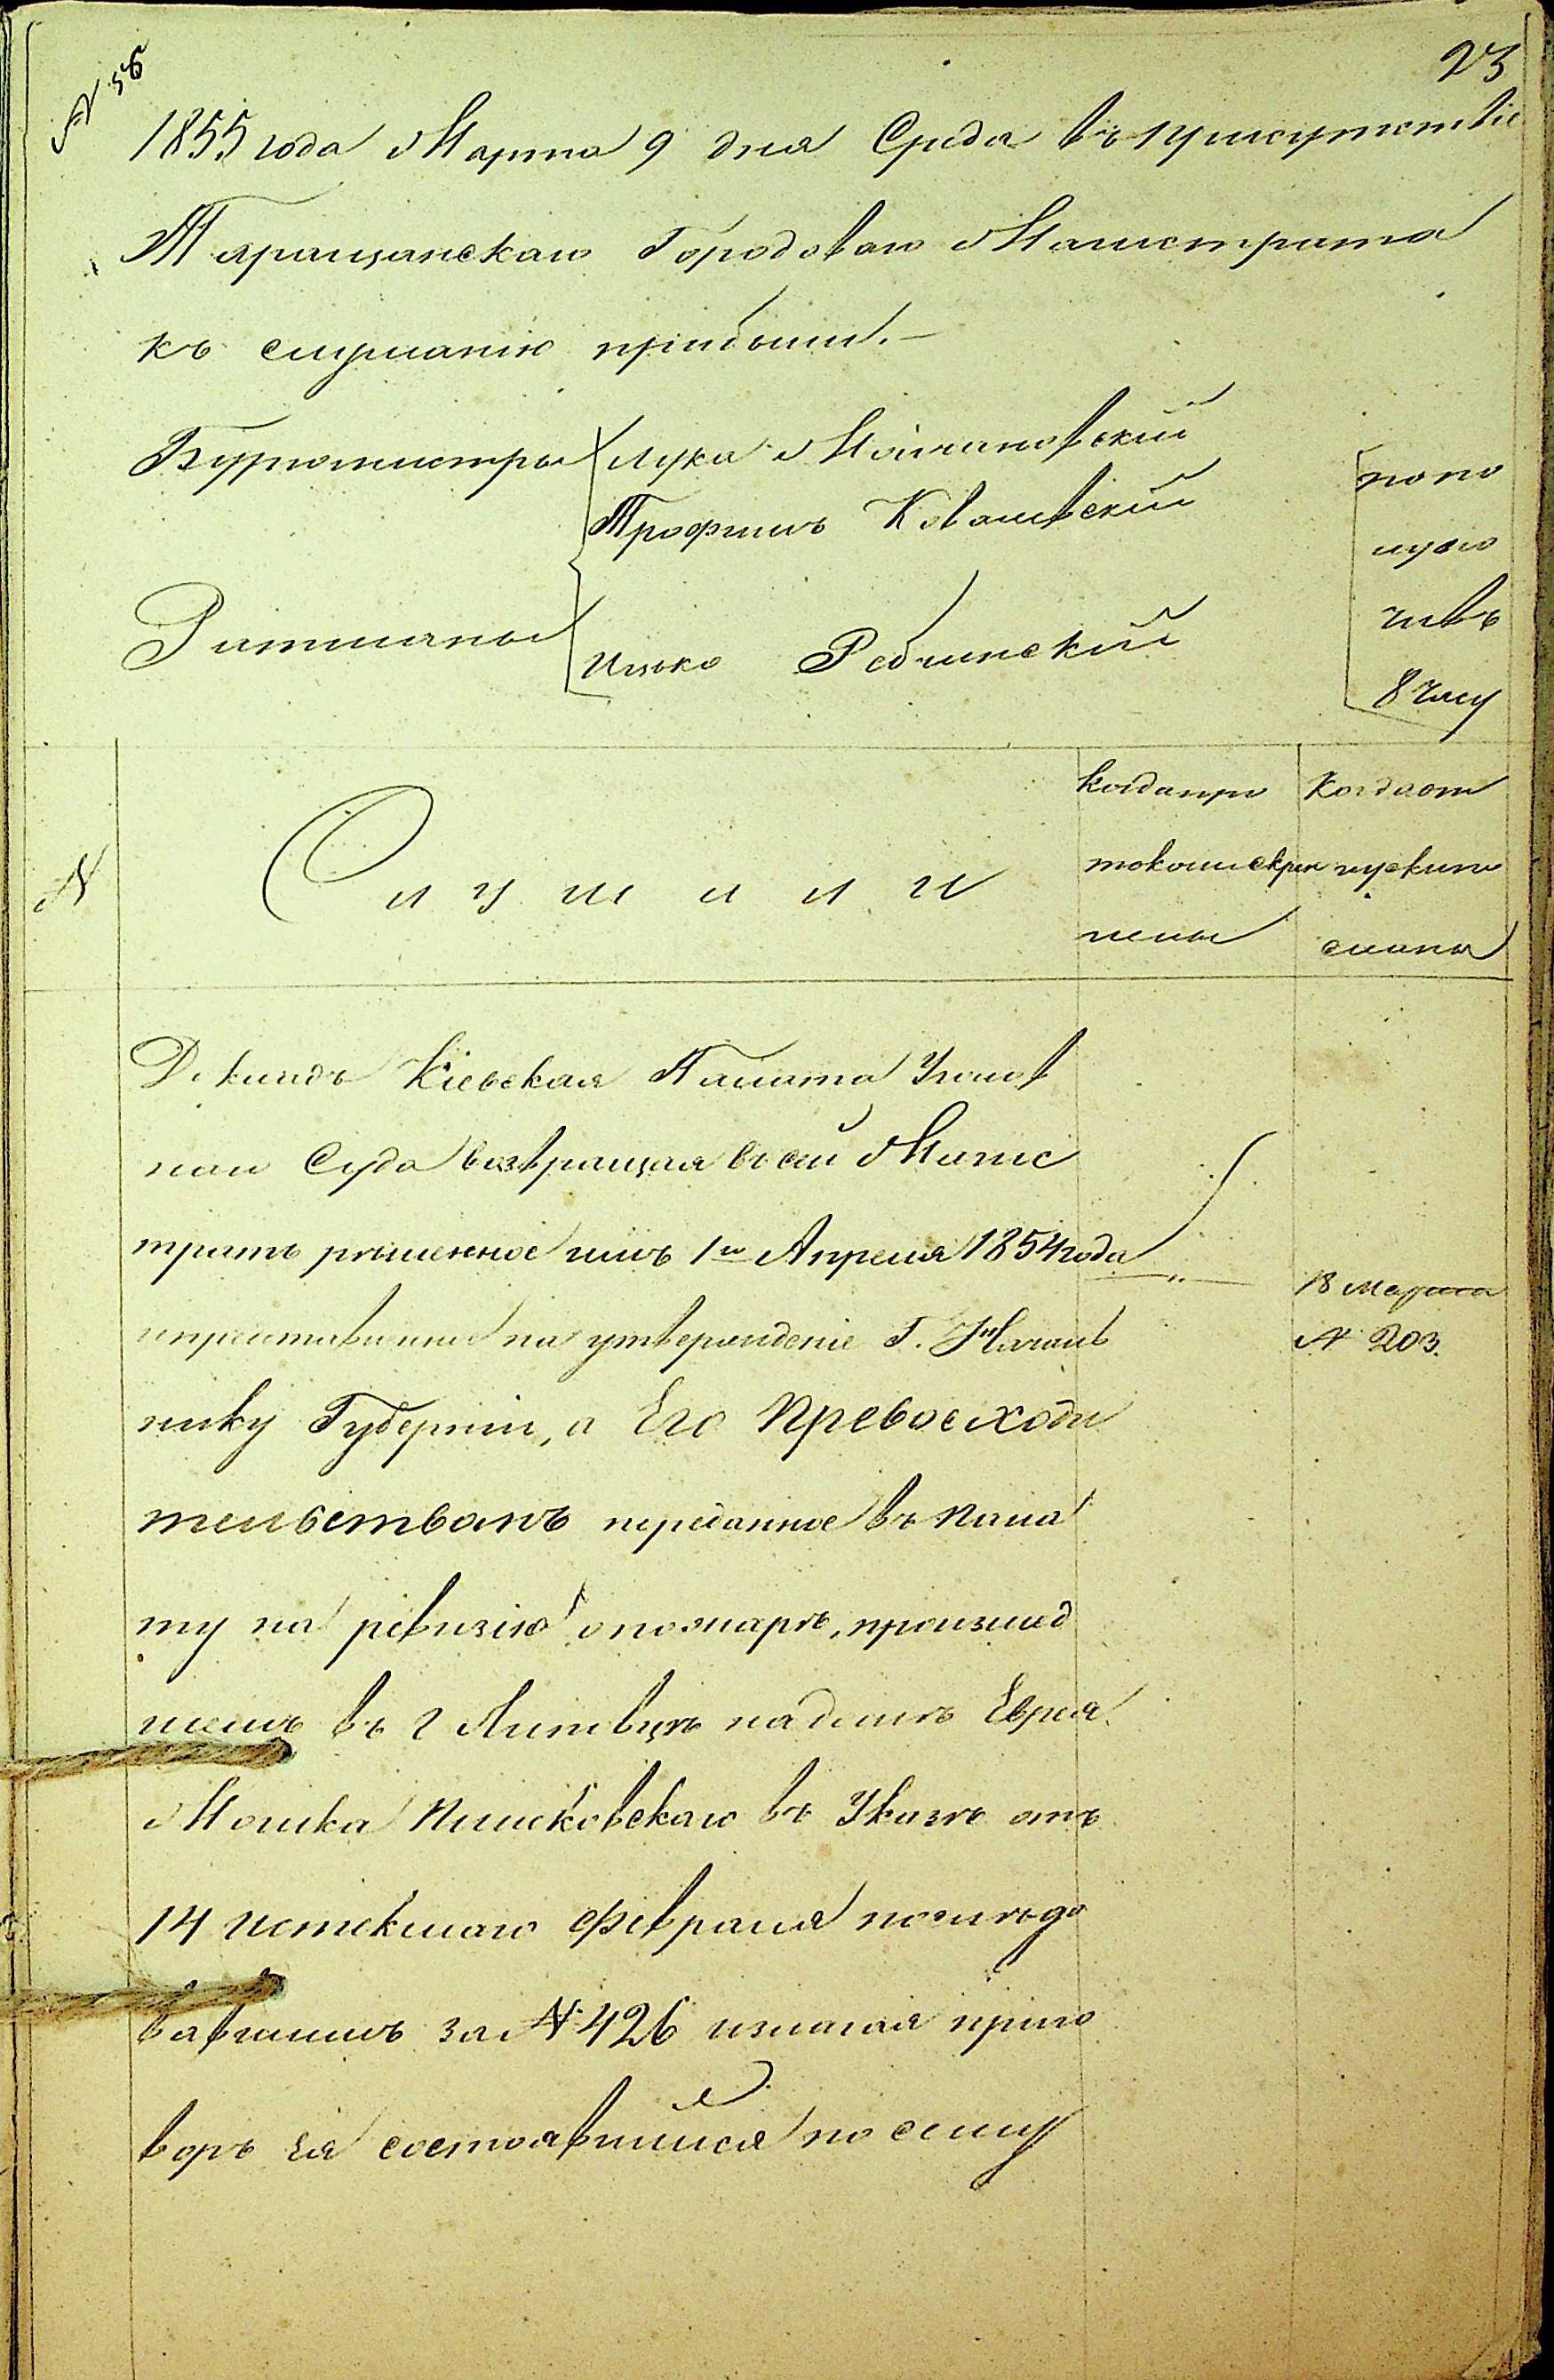 № 56
23
1855 года Марта 9 дня Среда въ присутствіе
Таращанскаго Городоваго Магистрата
къ слушанію прибыли.—
Бургомистры Лука
Трофимъ Ковалевскій
Ратманы Ицько Ребинскій
по по
луно
чивъ
8 часу
№
Слушали
Когда про
токолъ скрѣ
плены
Когда от
пуски по
сланы
Докладъ Кіевская Палата Уголов
наго Суда возвращая въ сей Магис
тратъ рѣшенное имъ 1го Апреля 1854 года
на утвержденіе Г. Началь
нику Губерніи, а Его Превосходи
тельствомъ переданное въ Пала
ту на ревизію о пожарѣ, произшед
шемъ въ г Литовцѣ надомъ Еврея
Мошка въ Указѣ отъ
14 истекшаго Февраля последо
вавшимъ за № 426 излагая приго
воръ ея состоявшійся по сему
18 Марта
№ 203.